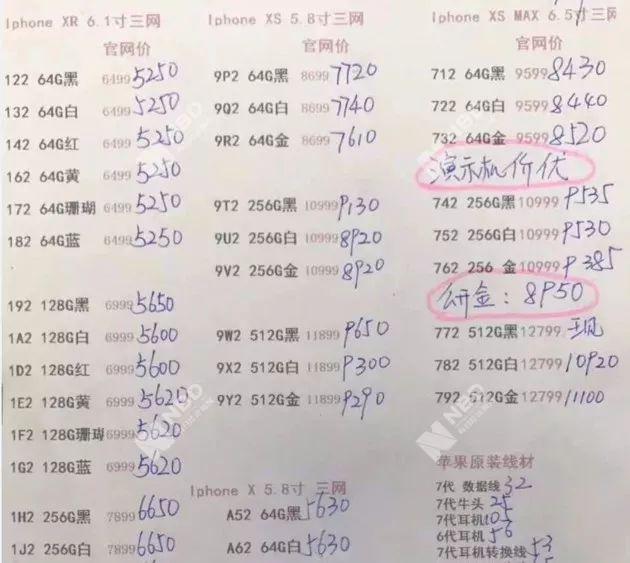 Iphone XR 6.1寸三网
官网价
122 64G黑 6499 5250
132 64G白 6499 5250
142 64G红 6499 5250
162 64G黄 6499 5250
172 64G珊瑚 6499 5250
182 64G蓝 6499 5250
192 128G黑 6999 5650
1A2 128G白 6999 5600
1D2 128G红 6999 5600
1E2 128G黄 6999 5620
1F2 128G珊瑚 6999 5620
1G2 128G蓝 6999 5620
1H2 256G黑 7899 6650
1J2 256G白 7899 6650
Iphone XS 5.8寸三网
官网价
9P2 64G黑 8699 7720
9Q2 64G白 8699 7740
9R2 64G金 8699 7610
9T2 256G黑 10999 9130
9U2 256G白 10999 8920
9V2 256G金 10999 8920
9W2 512G黑 11899 9650
9X2 512G白 11899 9300
9Y2 512G金 11899 9290
Iphone X 5.8寸 三网
A52 64G黑 5630
A62 64G白 5630
Iphone XS MAX 6.5寸三网
官网价
712 64G黑 9599 8430
722 64G白 9599 8440
732 64G金 9599 8520
演示机价优
742 256G黑 10999 9535
752 256G白 10999 9530
762 256 金 10999 9385
金: 8950
772 512G黑 12799
782 512G白 12799 10920
792 512G金 12799 11100
苹果原装线材
7代 数据线 32
7代牛头
7代耳机 105
6代耳机 56
7代耳机转换线 53
NBD